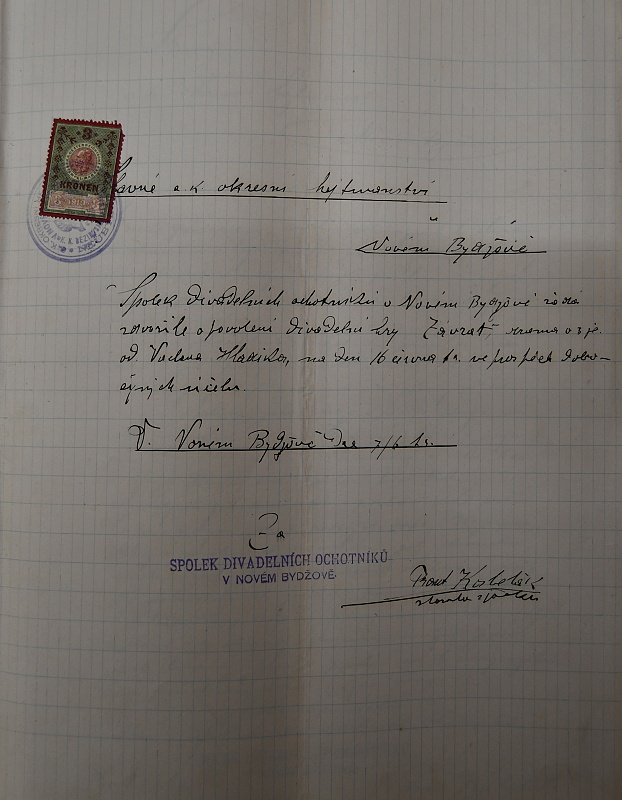 3
KRONEN
Slavné c. k. okresní hejtmanství
v
Novém Bydžově
Spolek divadelních ochotníků v Novém Bydžově žádá
zdvořile o povolení divadelní hry „Závrať", drama o 3 je.
od Václava Hladíka, na den 16 června t.r. ve prospěch dobro-
činných účelů.
V. Novém Bydžově dne 7/6 t.r.
Za
SPOLEK DIVADELNÍCH OCHOTNÍKŮ
V NOVÉM BYDŽOVĚ.
Frant